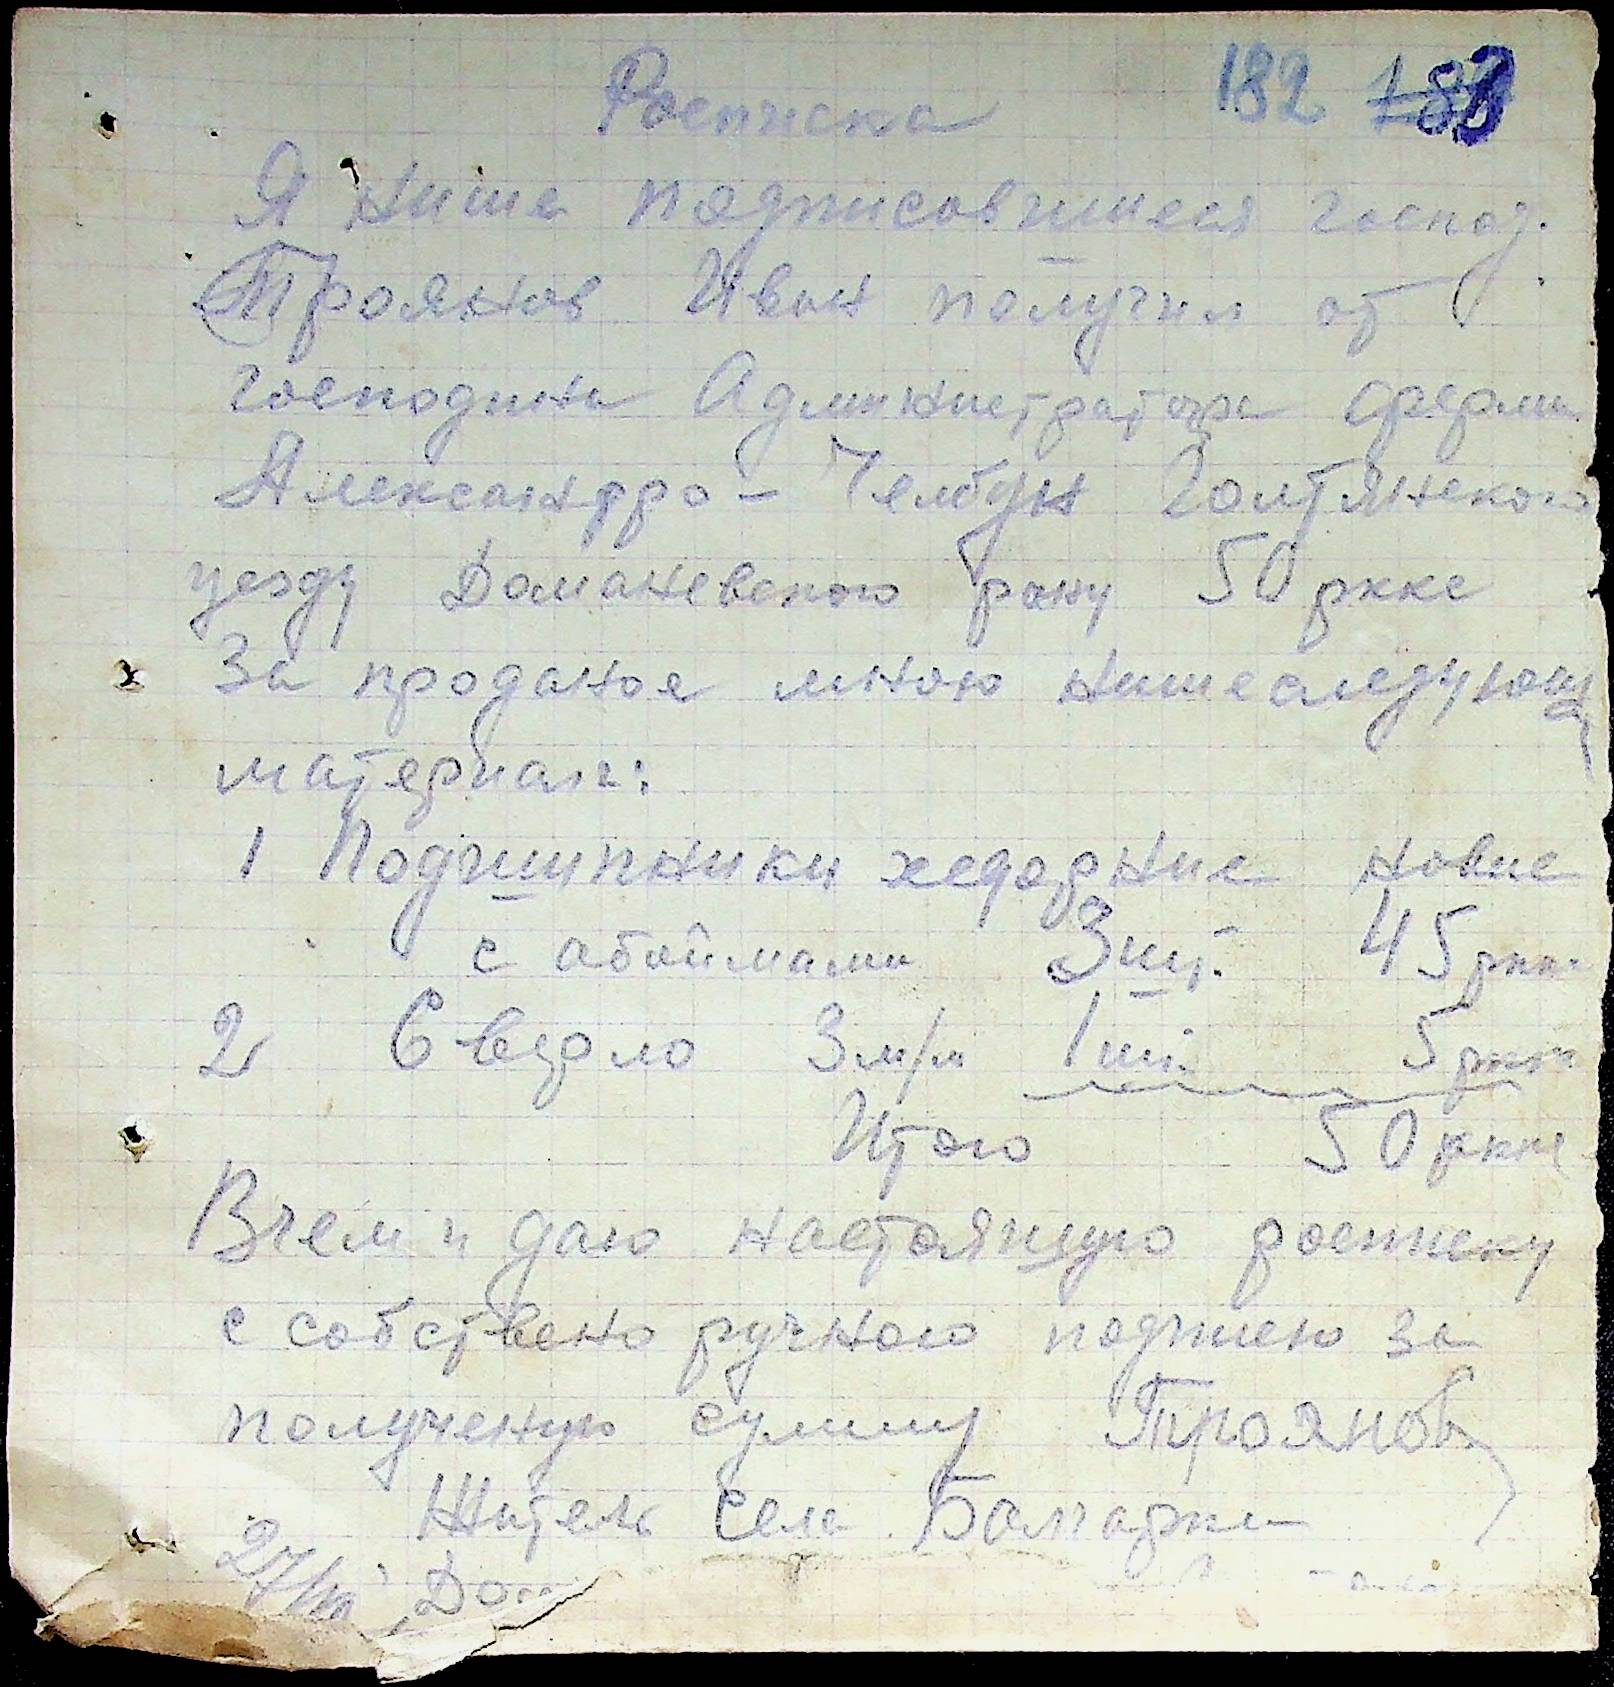 Росписка 182 183
Я нише подписовшиеся господ.
Троянов Иван получил от
господина Администратора ферми
Александро-Челбун Голтянского
уезду Доманевского рону 50 ркке
За проданое мною нишеследующ
материал:
1 Подчшипники новие
с абоймами 3шт. 45 ркке
2 Сверло 3 м/м 1шт. 5 ркке
Итого 50 ркке
В чем и даю настоящую росписку
с собствено ручною подписею за
полученую сумму Троянов
Житель села Болгарка
27/III До